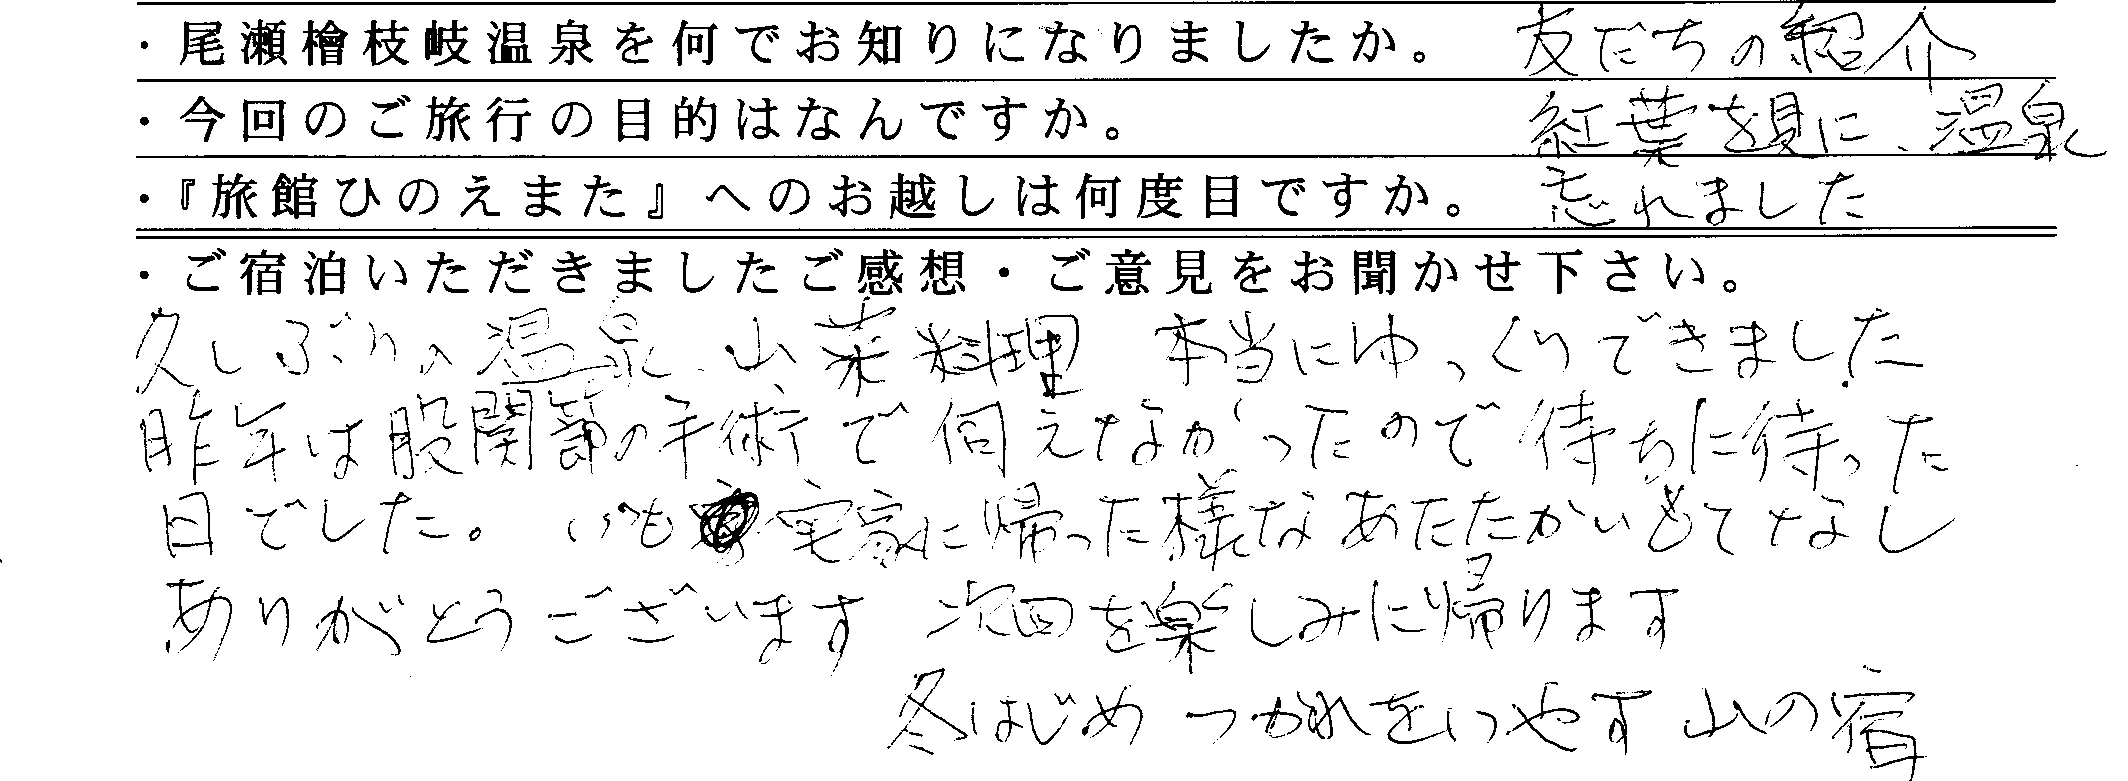 ・尾瀬檜枝岐温泉を何でお知りになりましたか。 友だちの紹介
・今回のご旅行の目的はなんですか。 紅葉を見に、温泉
・『旅館ひのえまた』へのお越しは何度目ですか。 忘れました
・ご宿泊いただきましたご感想・ご意見をお聞かせ下さい。
久しぶりの温泉、山菜料理 本当にゆっくりできました
昨年は股関節の手術で伺えなかったので待ちに待った
日でした。いつも 家に帰った様なあたたかいもてなし
ありがとうございます 次回を楽しみに帰ります
冬はじめ つかれをいやす 山の宿